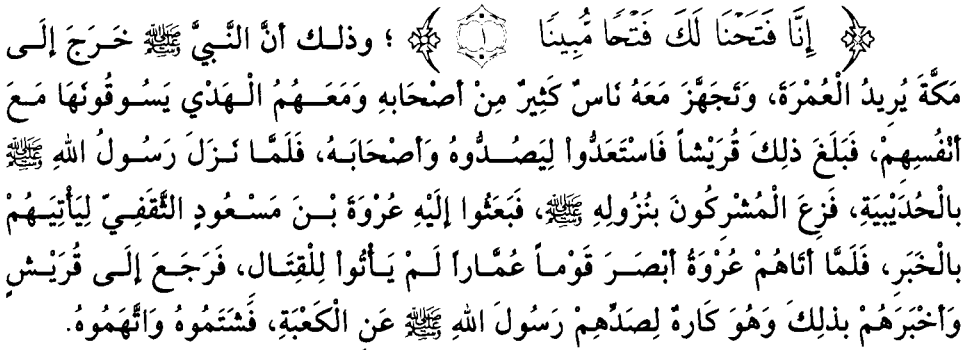 ﴿ إِنَّا فَتَحْنَا لَكَ فَتْحًا مُّبِينًا ١ ﴾ ؛ وذلـك أنَّ النَّبِيَّ ﷺ خَـرَجَ إلَـى
مَكَّةَ يُرِيدُ الْعُمْرَةَ، وَتَجَهَّزَ مَعَهُ نَاسٌ كَثِيرٌ مِنْ أصْحَابِهِ وَمَعَـهُمُ الْـهَدْي يَسُوقُونَهَا مَـعَ
أنْفُسِهِمْ، فَبَلَغَ ذلِكَ قُرَيْشاً فَاسْتَعَدُّوا لِيَصُـدُّوهُ وَأصْحَابَـهُ، فَلَمَّا نَـزَلَ رَسُـولُ اللهِ ﷺ
بِالْحُدَيْبِيَةِ، فَزِعَ الْمُشْرِكُونَ بنُزُولِهِ ﷺ، فَبَعَثُوا إلَيْهِ عُرْوَةَ بْـنَ مَسْـعُودٍ الثَّقَفِـيّ لِيَأْتِيَـهُمْ
بالْخَبَرِ، فَلَمَّا أتَاهُمْ عُرْوَةُ أبْصَـرَ قَوْمـاً عُمَّـاراً لَـمْ يَـأْتُوا لِلْقِتَـالِ، فَرَجَـعَ إلَـى قُرَيْـشٍ
وَأخْبَرَهُمْ بذلِكَ وَهُوَ كَارهٌ لِصَدِّهِمْ رَسُولَ اللهِ ﷺ عَنِ الْكَعْبَةِ، فَشَتَمُوهُ وَاتَّهَمُوهُ.